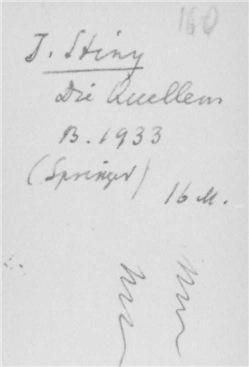 160
J. Stiny
Die Quellen
B. 1933
(Springer)
16 M.